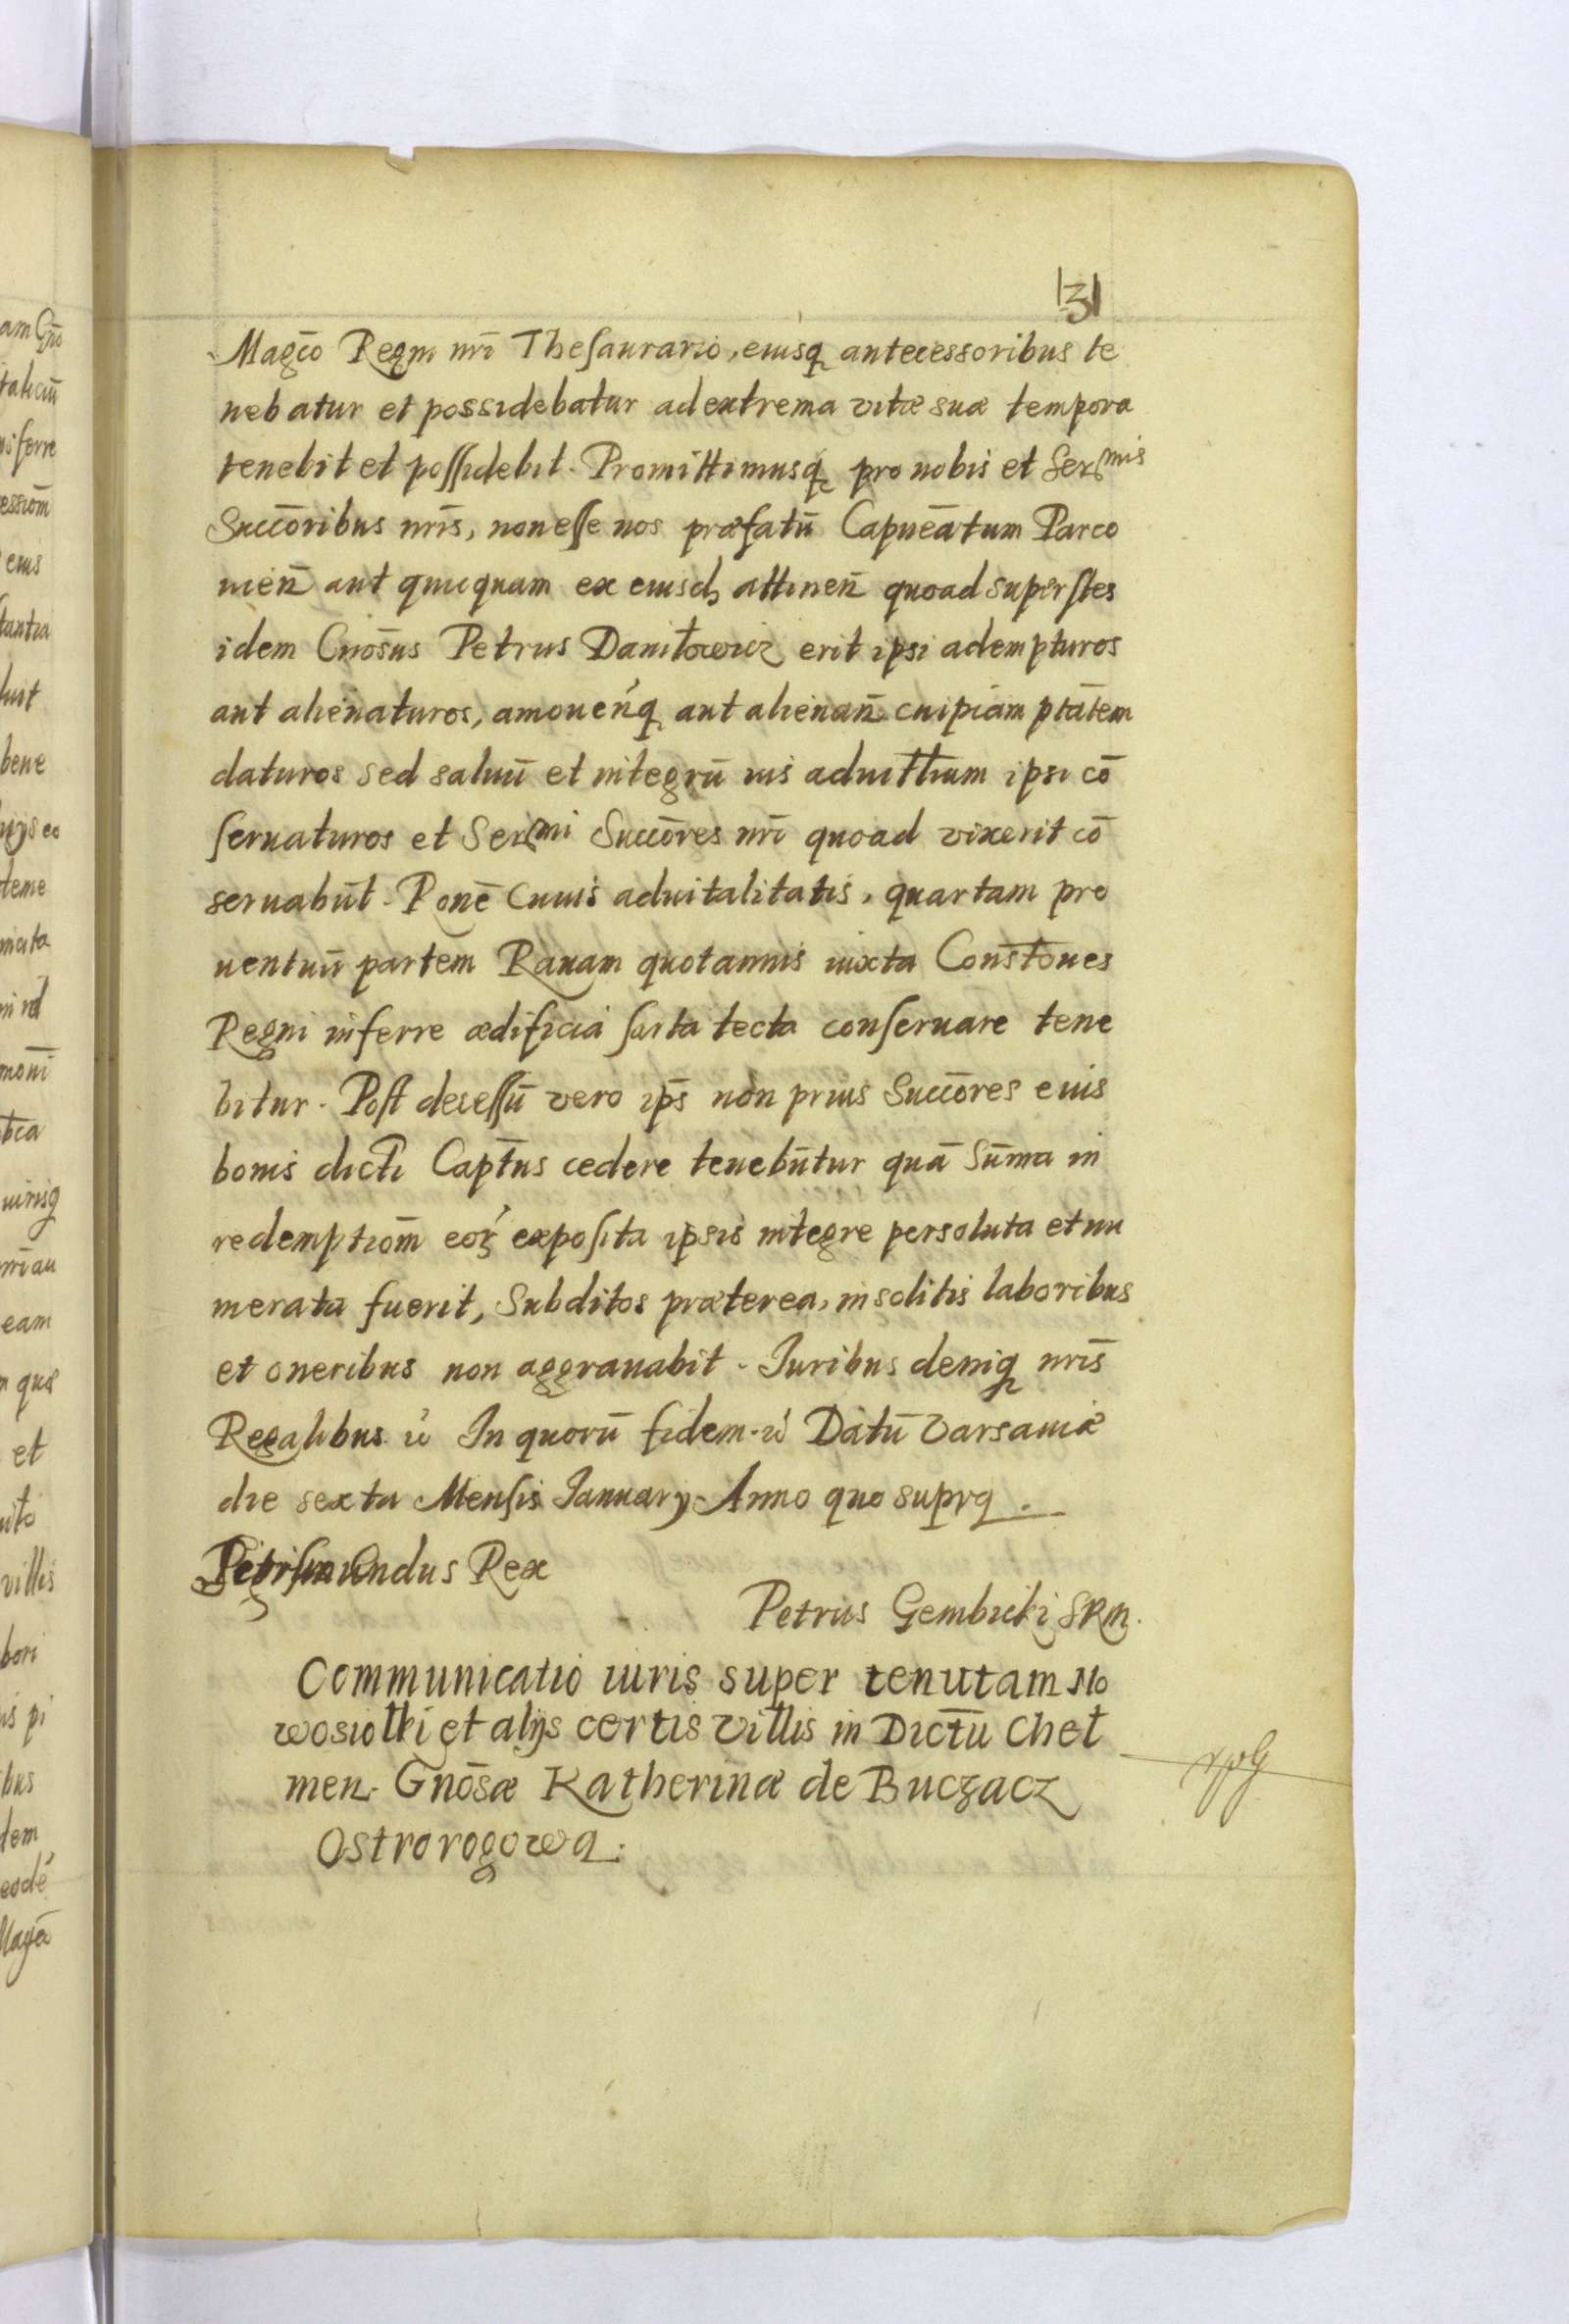 131
Magco Regni nri Thesaurario, eiusq antecessoribus te
nebatur et possidebatur ad extrema vitæ suæ tempora
tenebit et possidebit. Promittimusq pro nobis et Sermis
Succoribus nris, non esse nos præfatū Capneatum Parco
uien aut quicquam ex eiusd attinen quoad superstes
idem Gnosus Petrus Daniłowicz erit ipsi adempturos
aut alienaturos, amouenq aut alienan cuipiam ptatem
daturos sed saluū et integrū ius aduitlium ipsi cō
seruaturos et Sermi Succores nri quoad vixerit cō
seruabūt. Rone cuius aduitalitatis, quartam pro
uentuū partem Rauam quotannis iuxta Constones
Regni inferre ædificia sarta tecta conseruare tene
bitur. Post decessū vero ips non prius Succores eius
bonis dicti Captus cedere tenebūtur quā Sūma in
redemptiom eor exposita ipsis integre persoluta et nu
merata fuerit, Subditos præterea, insolitis laboribus
et oneribus non aggrauabit. Iuribus deniq nris
Regalibus In quorū fidem Datū Varsauiæ
die sexta Mensis Ianuary Anno quo supra.
Sigismundus Rex
Petrus Gembicki SRM.
Communicatio iuris super tenutam No
wosiołki et alijs certis villis in Dictū Cheł
men. Gnosæ Katherinæ de Buczacz
Ostrorogowa.